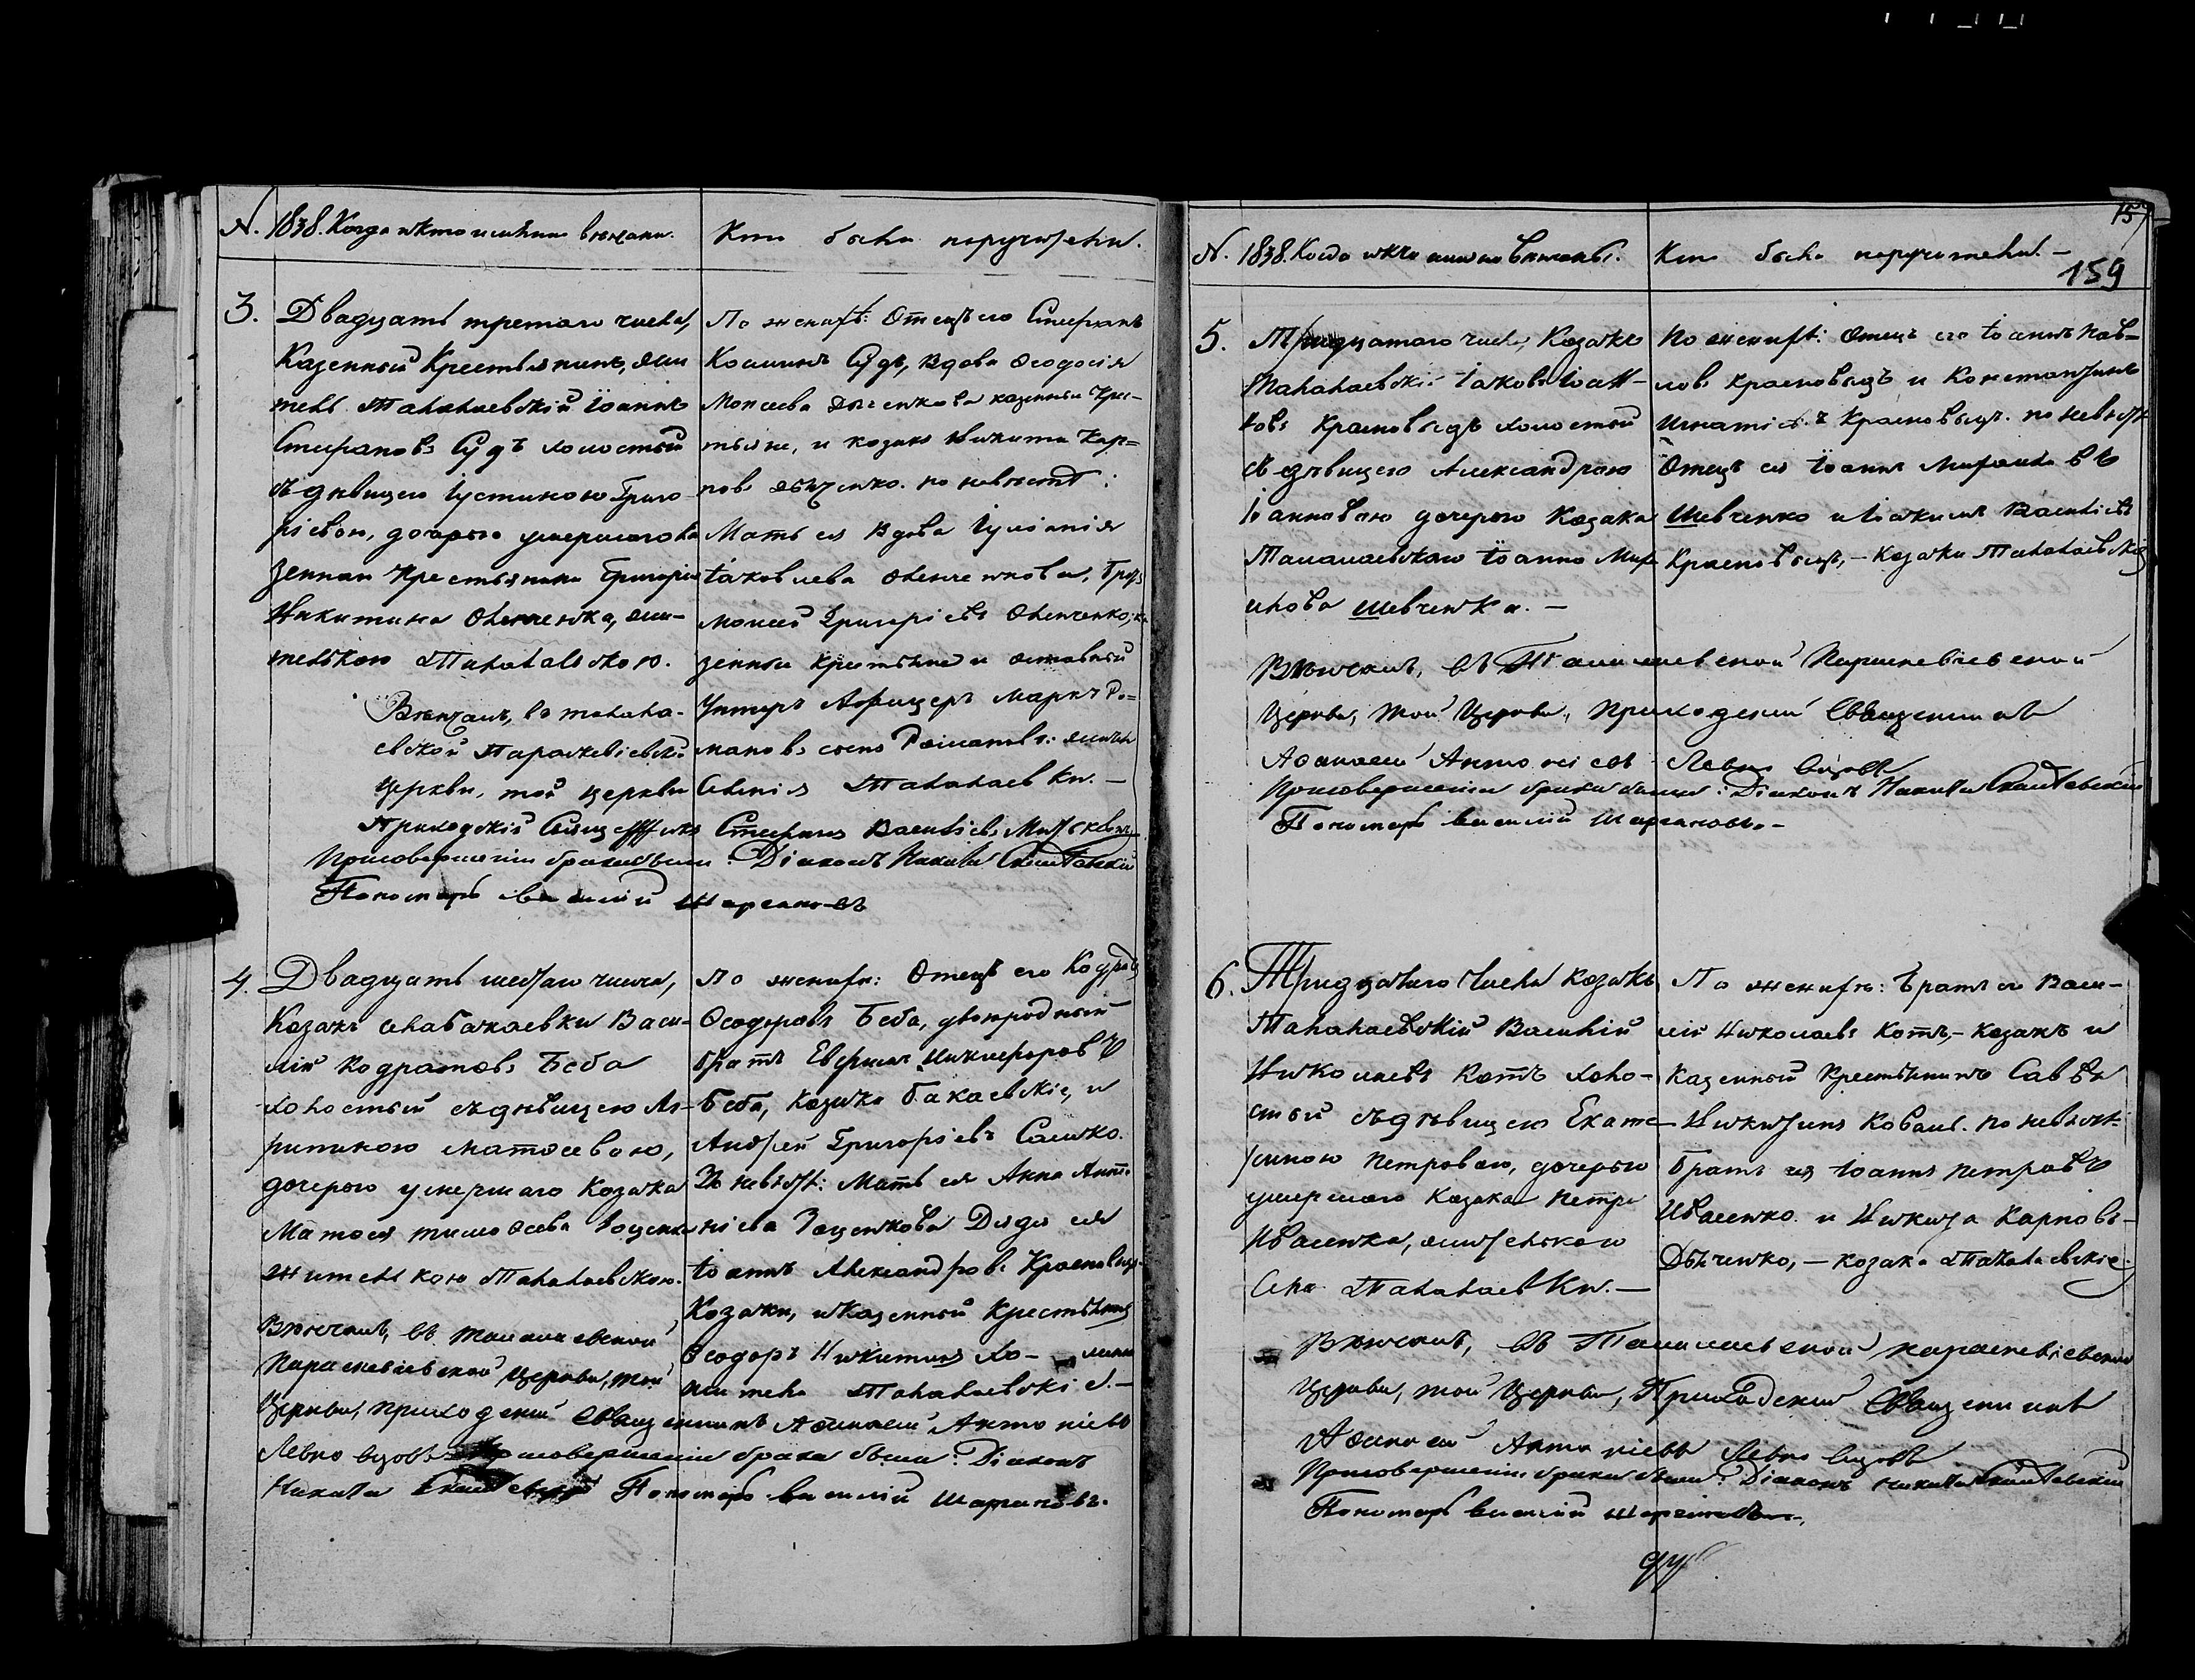 N. 1838. Когда и кто именно венчаны.
Кто были поручители.
3. Двадцать третого числа,
Казенный Крестьянинъ, жи
тель Талалаевскій Іоаннъ
Стефановъ Судъ холостый
съ дѣвицею Іустиною Григо
ріевою, дочерью умершаго ка
зеннаго Крестьянина Григорія
Никитина Оленченка, жи-
телькою Талалаевскою.
Вѣнчалъ, въ талала-
евской Параскевіевской
церкви, той церкви
Приходскій Священникъ Стефанъ Василіевъ
При совершеніи брака были: Діаконъ Никита
Пономарь василій Шаргановъ
По женихѣ: Отецъ его Стефанъ
Косминъ Судъ, Вдова Ѳеодосія
Моисеева казенные Кре-
стьяне, и козакъ Никита Кар=
повъ Дѣнченко. по невѣстѣ:
Мать ея Вдова Іуліанія
Іаковлева Оленченкова, братъ
Моисей Григоріевъ Оленченко, ка
зенные крестьяне и отставный
Унтеръ Афицеръ Маркъ Ро=
мановъ сынъ Романовъ: жители
Селенія Талалаевки. —
4. Двадцать шестаго числа,
Козакъ Васи-
лій Кодратовъ Беба
холостый съ дѣвицею Ма-
риною Матѳеевою,
дочерью умершаго Козака
Матѳея тимоѳеева Зоценка
жителькою Талалаевскою.
Вѣнчалъ, въ талалаевской
Параскевіевской Церкви, той
Церкви, приходскій Священникъ Аѳанасій Антоніевъ
При совершеніи брака были: Діаконъ
Никита Пономарь василій Шаргановъ.
По женихѣ: Отецъ его Кодратъ
Ѳеодоровъ Беба, двоюродный
братъ Никифоровъ
Беба, Козаки бакаевскіе, и
Андрей Григоріевъ Сашко.
По невѣстѣ: Мать ея Анна Анто
ніева Зоценкова Дядя ея
Іоаннъ Александровъ Красновыдъ
Козаки, и казенный Крестьянинъ
Ѳеодоръ Никитинъ
жители Талалаевскіе. —
157
159
N. 1838. Когда и кто именно вѣнчаны.
Кто были поручители. —
5. Тридцатаго числа, Козакъ
Талалаевскій Іаковъ Іоан-
новъ Красновыдъ холостый
съ дѣвицею Александрою
Іоанновою дочерью Козака
Талалаевскаго Іоанна Миха
илова Шевченка. —
Вѣнчалъ, въ Талалаевской Параскевіевской
Церкви, той Церкви, Приходскій Священникъ
Аѳанасій Антоніевъ
При совершеніи брака были: Діаконъ Никита
Пономарь василій Шаргановъ. —
По женихѣ: Отецъ его Іоаннъ Пав-
ловъ Красновыдъ и Константинъ
Игнатіевъ Красновыдъ. по невѣстѣ
Отецъ ея Іоаннъ Михаиловъ
Шевченко и Іоакимъ Василіевъ
Красновыдъ, — Козаки Талалаевскіе
6. Тридцатаго числа Козакъ
Талалаевскій Василій
Николаевъ Котъ холо-
стый съ дѣвицею Екате-
риною Петровою, дочерью
умершаго Козака Петра
Ивасенка, жителькою
Села Талалаевки. —
Вѣнчалъ, въ Талалаевской параскевіевской
Церкви, той Церкви, Приходскій Священникъ
Аѳанасій Антоніевъ
При совершеніи брака были: Діаконъ Никита
Пономарь василій Шаргановъ
По женихѣ: Братъ его Васи-
лій Николаевъ Котъ, — Козакъ и
Казенный Крестьянинъ Савва
Никитинъ Коваль. по невѣстѣ
братъ ея Іоаннъ Петровъ
Ивасенко и Никита Карповъ
Дѣнченко, — козаки Талалаевскіе